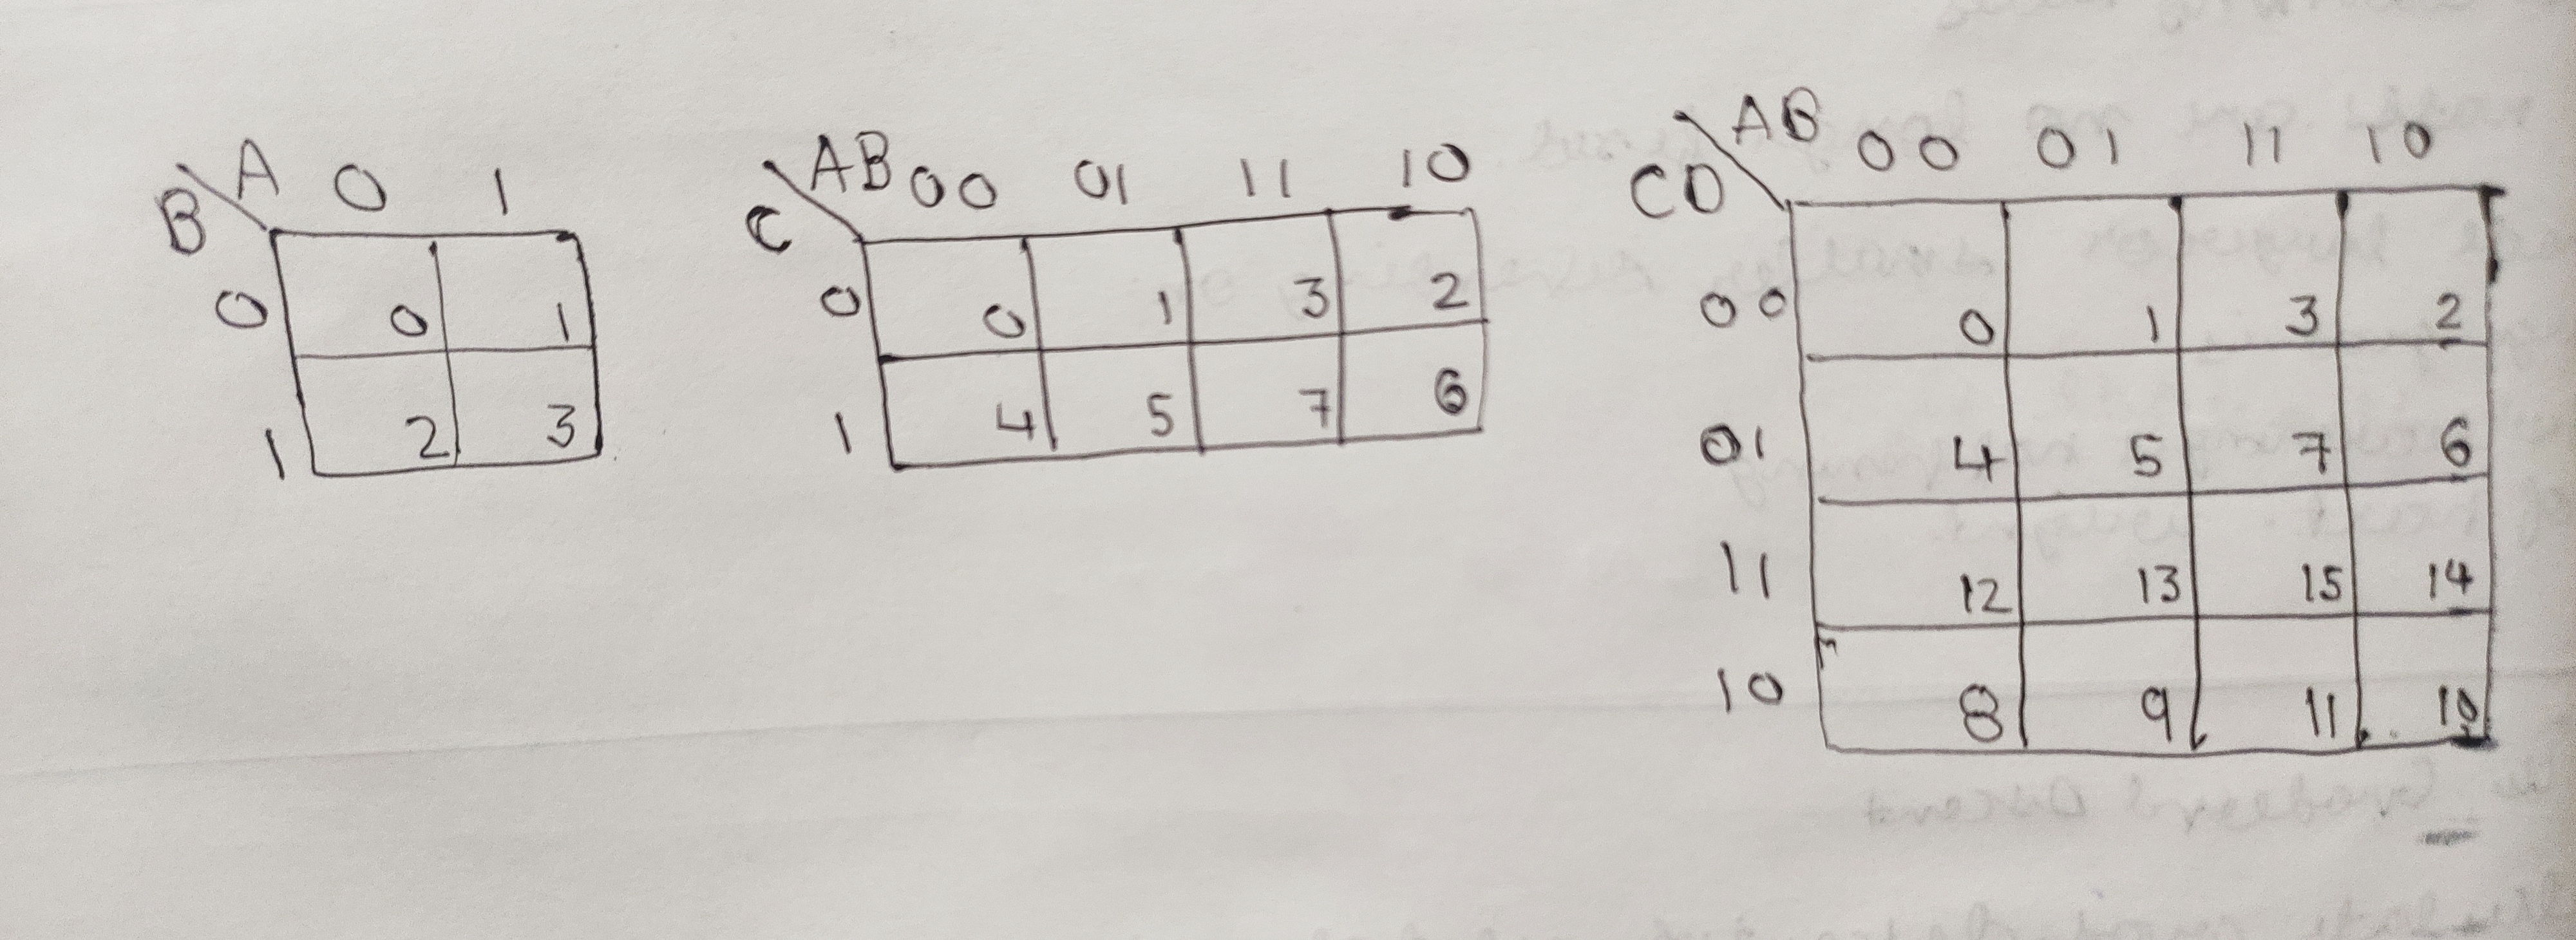 A 0 1
B
0 0 1
1 2 3
AB 00 01 11 10
C
0 0 1 3 2
1 4 5 7 6
AB 00 01 11 10
CD
00 0 1 3 2
01 4 5 7 6
11 12 13 15 14
10 8 9 11 10